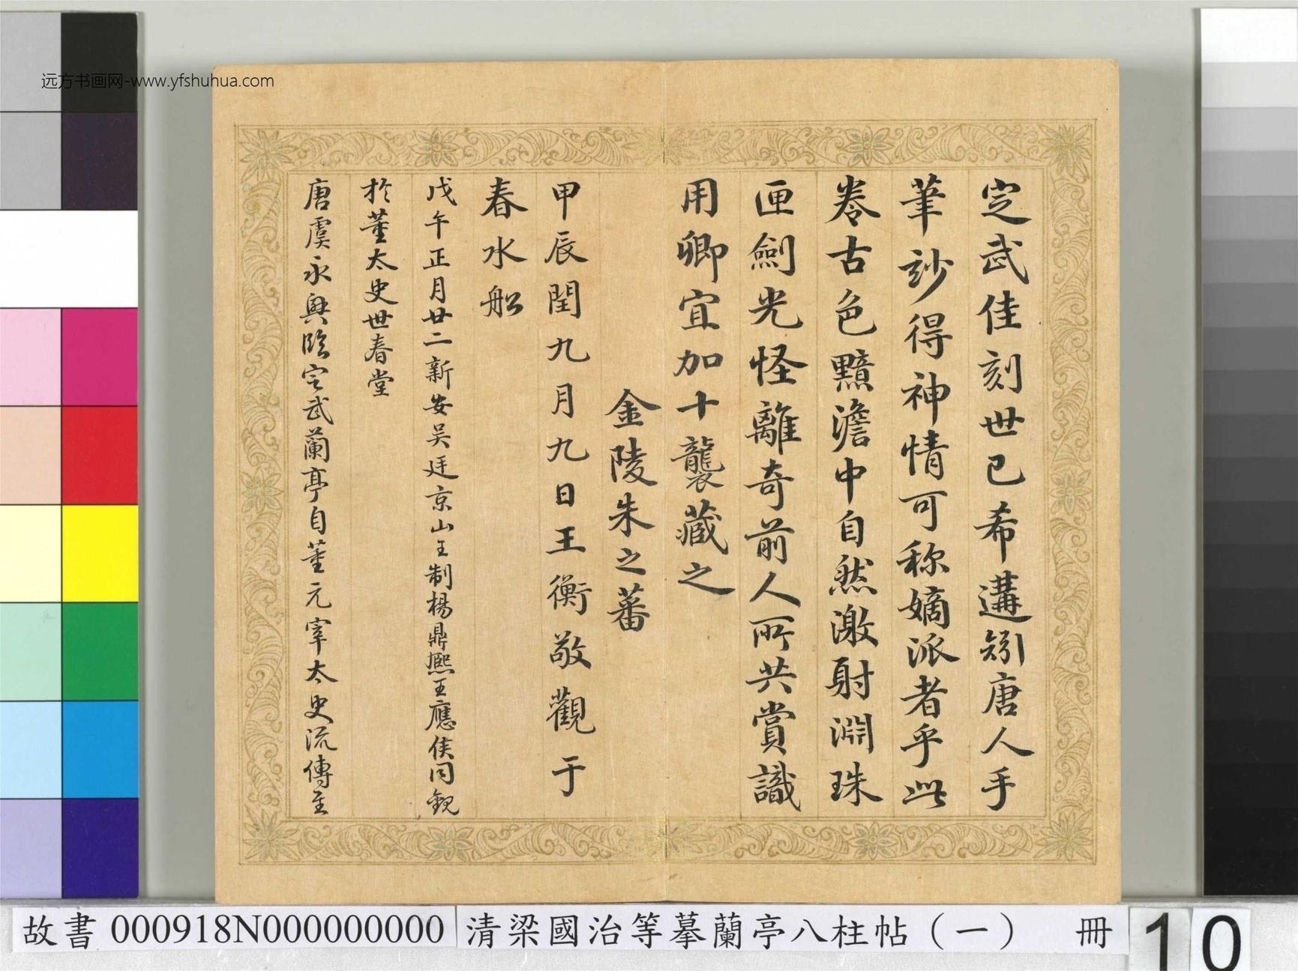 远方书画网-www.yfshuhua.com
定武佳刻世已希遘矧唐人手
筆玅得神情可称嫡派者乎此
卷古色黯澹中自然激射淵珠
匣劍光怪離奇前人所共賞識
用卿宜加十襲藏之
金陵朱之蕃
甲辰閏九月九日王衡敬觀于
春水船
戊午正月廿二新安吴廷京山王制楊鼎熙王應侯同觀
於董太史世春堂
唐虞永興臨定武蘭亭自董元宰太史流傳至
故書 000918N000000000 清梁國治等摹蘭亭八柱帖（一） 冊
10